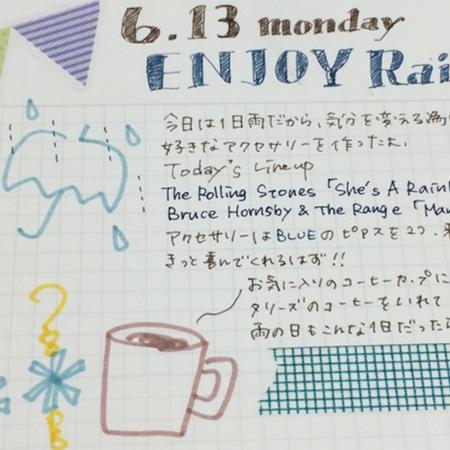 6.13 monday
ENJOY Rai
今日は1日雨だから、気分を変える為
好きなアクセサリーを作ったよ
Today's Lineup
The Rolling Stones「She's A Rain
Bruce Hornsby & The Range「Man
アクセサリーはBLUEのピアスを2つ.
きっと喜んでくれるはず!!
お気に入りのコーヒーカップに
タリーズのコーヒーをいれて
雨の日もこんな1日だったら